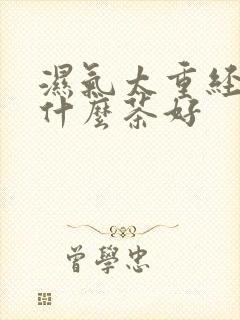 濕氣太重經
什麼茶好
曾學忠